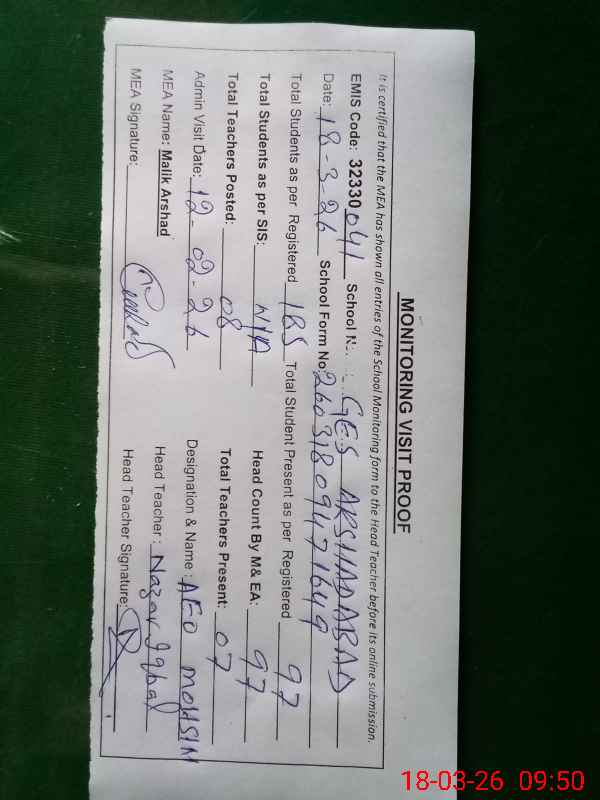 MONITORING VISIT PROOF
It is certified that the MEA has shown all entries of the School Monitoring form to the Head Teacher before its online submission.
EMIS Code: 32330041 School N... GES ARSHADABAD
Date: 18-3-26 School Form No: 26031809471649
Total Students as per Registered 185 Total Student Present as per Registered 97
Total Students as per SIS: N/A Head Count By M& EA: 97
Total Teachers Posted: 08 Total Teachers Present: 07
Admin Visit Date: 12-02-26 Designation & Name: AEO MOHSIN
MEA Name: Malik Arshad Head Teacher: Nazar Iqbal
MEA Signature: Head Teacher Signature:
18-03-26 09:50